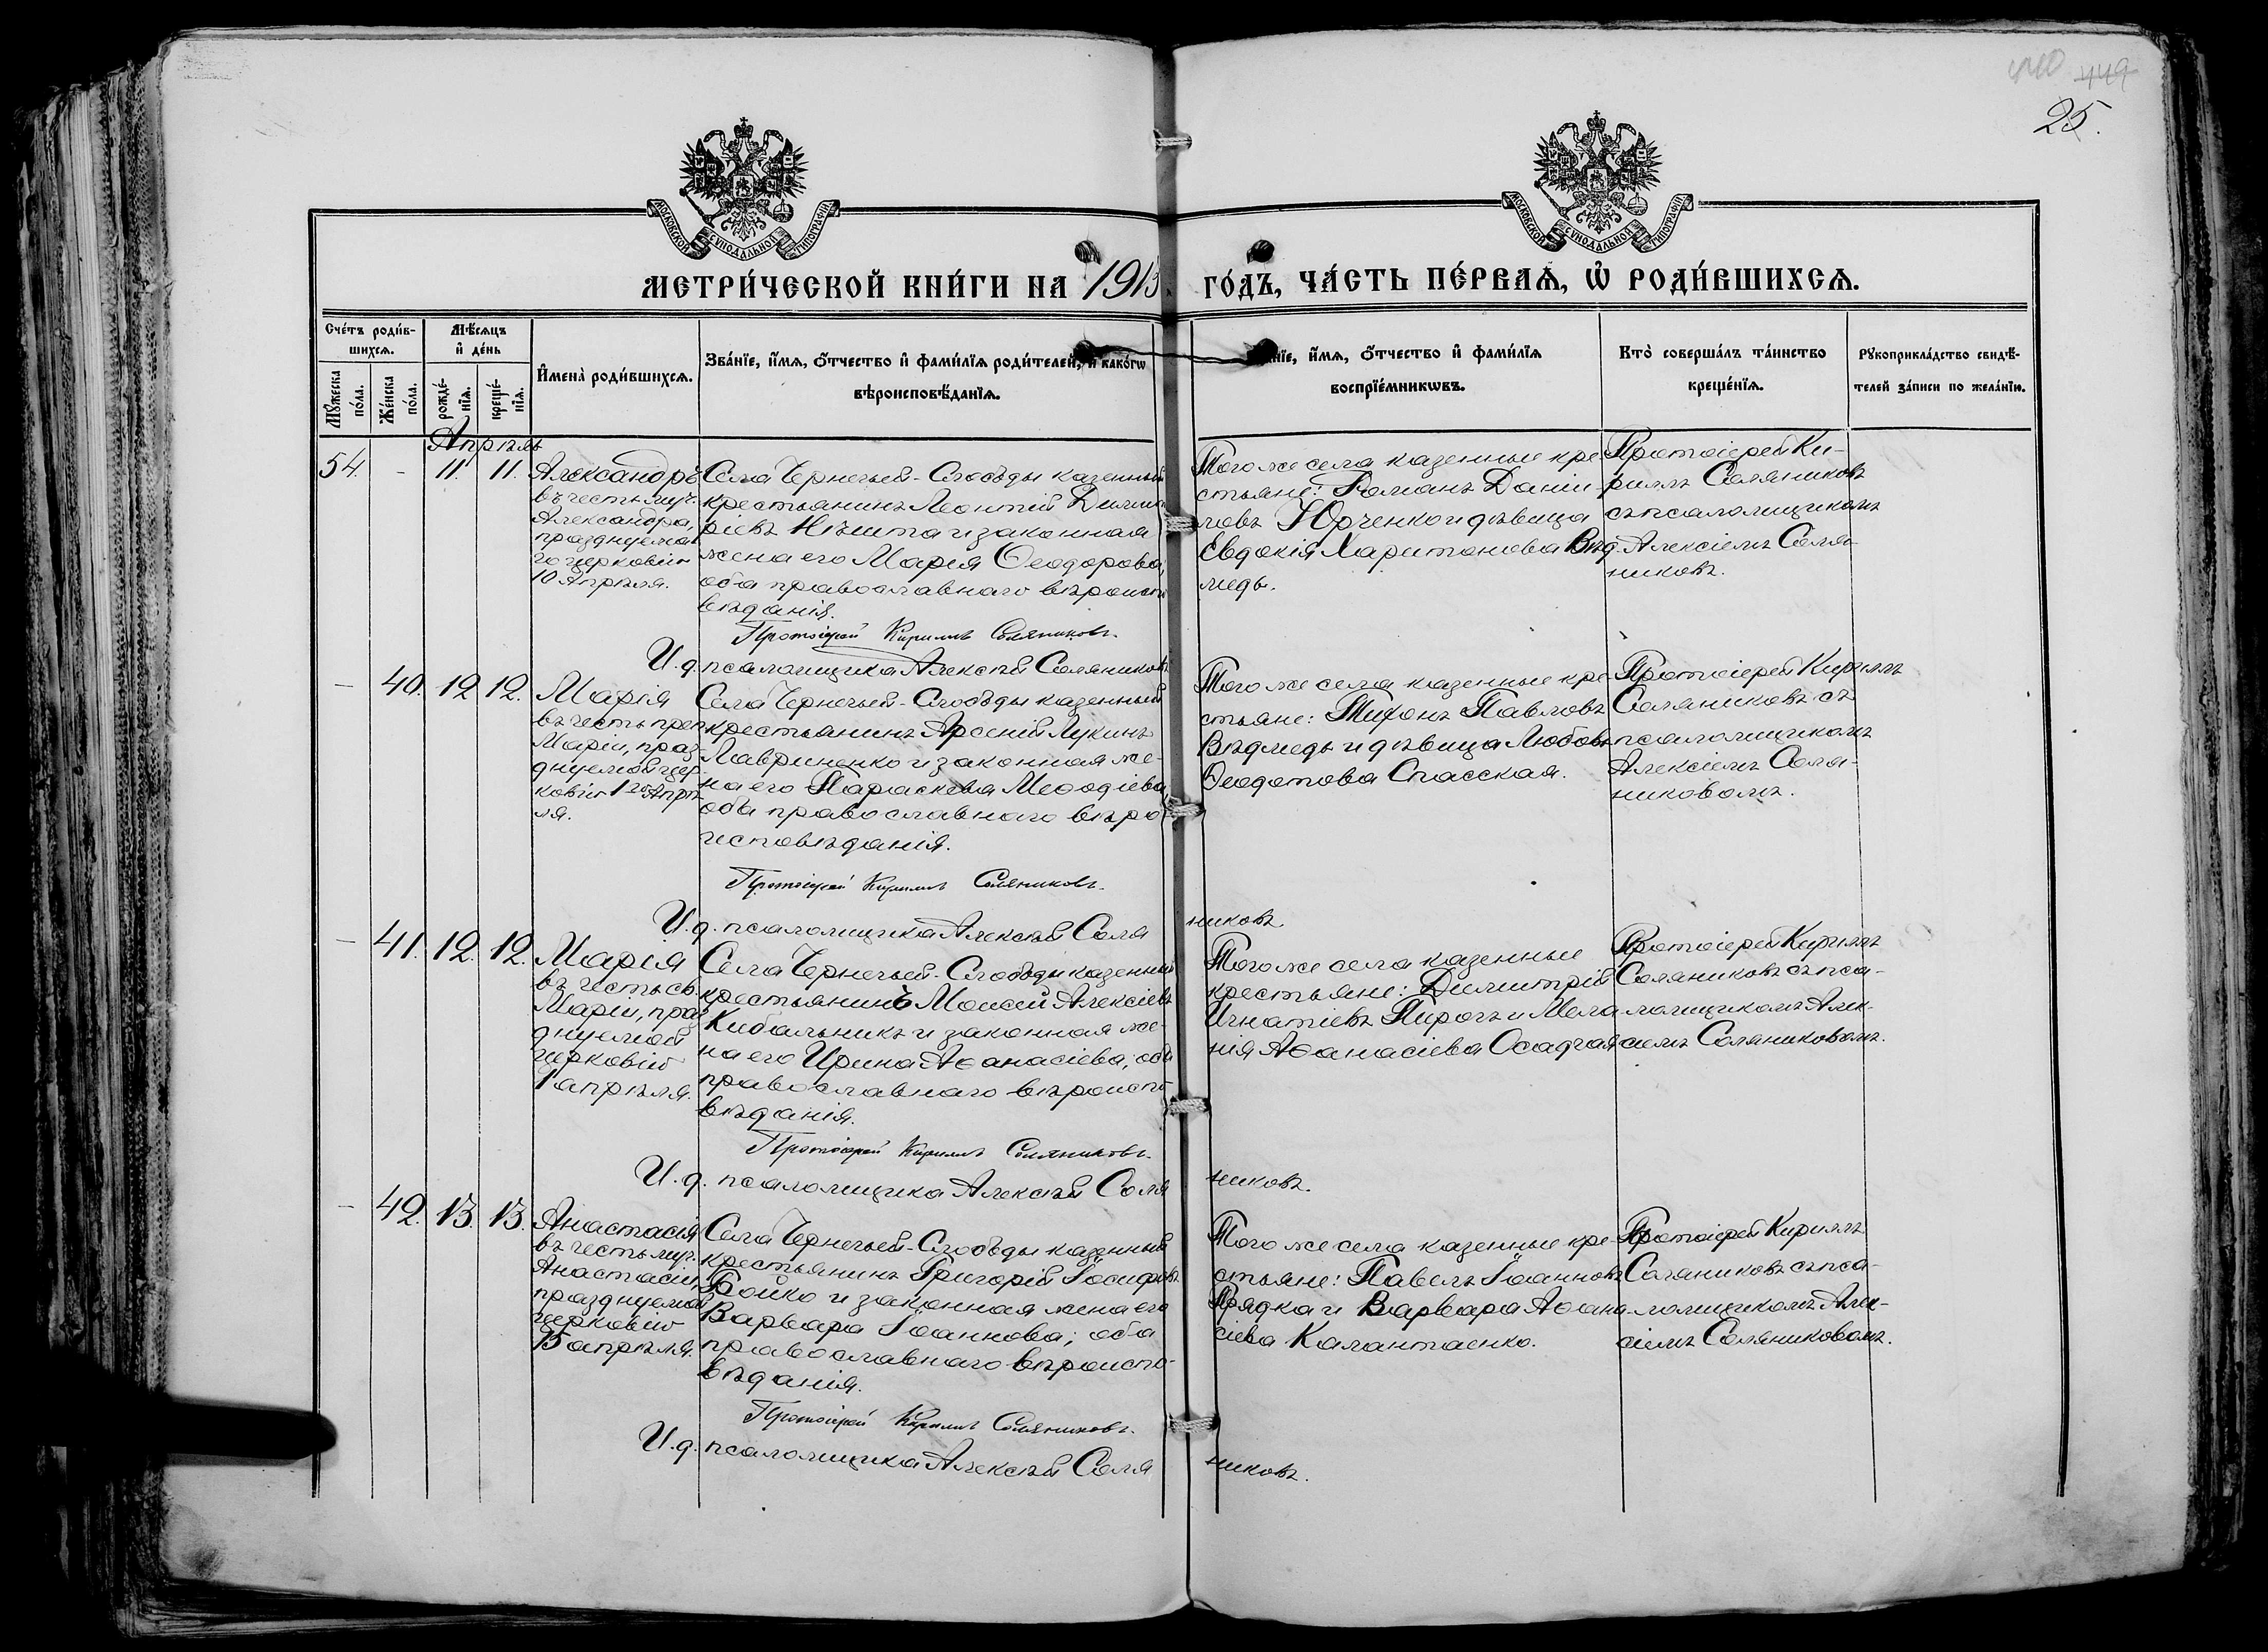 440 449
25.
МОСКОВСКОЙ СѴНОДАЛЬНОЙ ТИПОГРАФІИ
МОСКОВСКОЙ СѴНОДАЛЬНОЙ ТИПОГРАФІИ
МЕТРИ́ЧЕСКОЙ КНИ́ГИ НА 1913 ГО́ДЪ, ЧА́СТЬ ПЕ́РВАѦ, Ѡ҆ РОДИ́ВШИХСѦ.
Сче́тъ роди́в-
шихсѧ.
Мꙋ́жеска по́ла.
Же́нска по́ла.
Мѣ́сѧцъ
и҆ де́нь
рожде́-
нїѧ.
креще́-
нїѧ.
И҆мена̀ роди́вшихсѧ.
Зва́нїе, и҆́мѧ, ѻ҆́тчество и҆ фами́лїѧ роди́телей, и҆ како́гѡ
вѣроисповѣ́данїѧ.
Зва́нїе, и҆́мѧ, ѻ҆́тчество и҆ фами́лїѧ
воспрїе́мникѡвъ.
Кто̀ соверша́лъ та́инство
креще́нїѧ.
Рꙋкоприкла́дство свидѣ́-
телей за́писи по жела́нїю.
Апрѣль
54. - 11. 11.
Александръ
въ честь муч.
Александра,
празднуема
го церковію
10 Апрѣля.
Села Чернечьей-Слободы казенный
крестьянинъ Леонтій Димит
ріевъ Нѣшта и законная
жена его Марія Ѳеодорова,
оба православнаго вѣроиспо
вѣданія.
Протоіерей Кириллъ Соляниковъ.
И. д. псаломщика Алексѣй Соляниковъ
Того же села казенные кре-
стьяне: Романъ Даніи-
ловъ Юрченко и дѣвица
Евдокія Харитонова Вѣд
медь.
Протоіерей Ки-
риллъ Соляниковъ
съ псаломщикомъ
Алексіемъ Соля-
никовъ.
- 40. 12. 12.
Марія
въ честь преп
Маріи, праз-
днуемой цер-
ковію 1го Апрѣ
ля.
Села Чернечьей-Слободы казенный
крестьянинъ Арсеній Лукинъ
Лавриненко и законная же-
на его Параскева Меѳодіева,
оба православнаго вѣро-
исповѣданія.
Протоіерей Кириллъ Соляниковъ.
И. д. псаломщика Алексѣй Соля никовъ.
Того же села казенные кре-
стьяне: Тихонъ Павловъ
Вѣдмедь и дѣвица Любовь
Ѳеодотова Спасская.
Протоіерей Кириллъ
Соляниковъ съ
псаломщикомъ
Алексіемъ Соля-
никовомъ.
- 41. 12. 12.
Марія
въ честь св.
Маріи, праз
днуемой
церковію
1 апрѣля.
Села Чернечьей-Слободы казенный
крестьянинъ Моисей Алексіевъ
Кибальникъ и законная же-
на его Ирина Аѳанасіева, оба
православнаго вѣроиспо
вѣданія.
Протоіерей Кириллъ Соляниковъ.
И. д. псаломщика Алексѣй Соля никовъ.
Того же села казенные
крестьяне: Димитрій
Игнатіевъ Пирогъ и Мела-
нія Аѳанасіева Осадчая
Протоіерей Кириллъ
Соляниковъ съ пса-
ломщикомъ Алек-
сіемъ Соляниковомъ.
- 42. 13. 13.
Анастасія
въ честь муч.
Анастасіи,
празднуемой
церковію
15 апрѣля.
Села Чернечьей-Слободы казенный
крестьянинъ Григорій Іосифовъ
Бойко и законная жена его
Варвара Іоаннова; оба
православнаго вѣроиспо-
вѣданія.
Протоіерей Кириллъ Соляниковъ.
И. д. псаломщика Алексѣй Соля никовъ.
Того же села казенные кре-
стьяне: Павелъ Іоанновъ
Прядка и Варвара Аѳана-
сіева Калантаенко.
Протоіерей Кириллъ
Соляниковъ съ пса-
ломщикомъ Алек-
сіемъ Соляниковомъ.